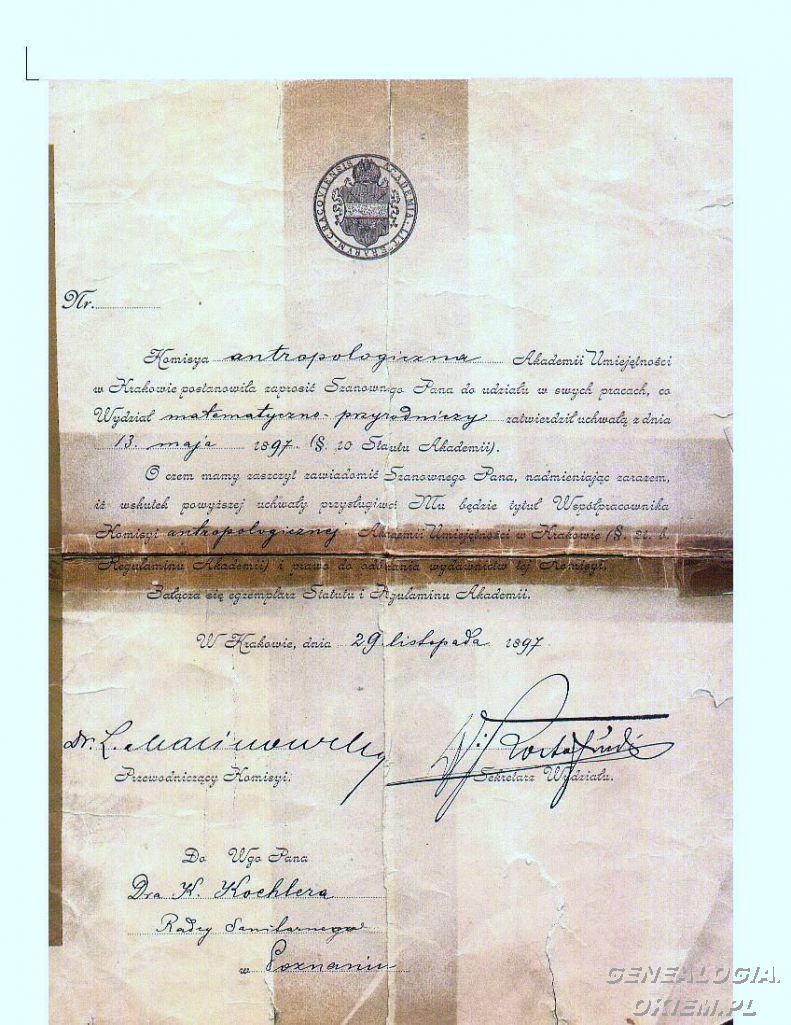 ACADEMIA · LITERARUM · CRACOVIENSIS
Nr.
Komisya antropologiczna Akademii Umiejętności
w Krakowie postanowiła zaprosić Szanownego Pana do udziału w swych pracach, co
Wydział matematyczno-przyrodniczy zatwierdził uchwałą z dnia
13. maja 1897 (§. 10 Statutu Akademii).
O czem mamy zaszczyt zawiadomić Szanownego Pana, nadmieniając zarazem,
iż wskutek powyższej uchwały przysługiwać Mu będzie tytuł Współpracownika
Komisyi antropologicznej Akademii Umiejętności w Krakowie (§. 21. b.
Regulaminu Akademii) i prawo do odbierania wydawnictw tej Komisyi.
Załącza się egzemplarz Statutu i Regulaminu Akademii.
W Krakowie, dnia 29 listopada 1897
Dr. L. Malinowsky
Przewodniczący Komisyi.
Sekretarz Wydziału.
Do Wgo Pana
Dra K. Koehlera
Radcy Sanitarnego
w Poznaniu
GENEALOGIA.
OKIEM.PL